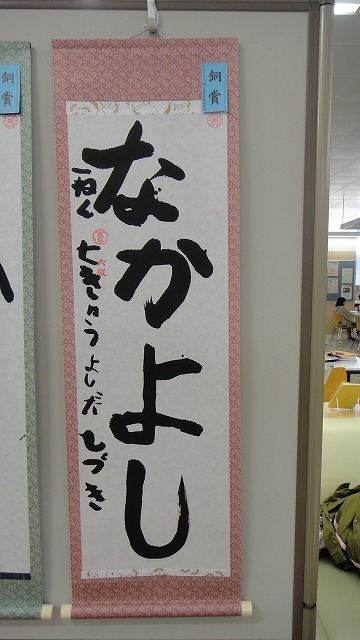 銅賞
なかよし
一ねん
七きゅう よしだ しづき
銅賞